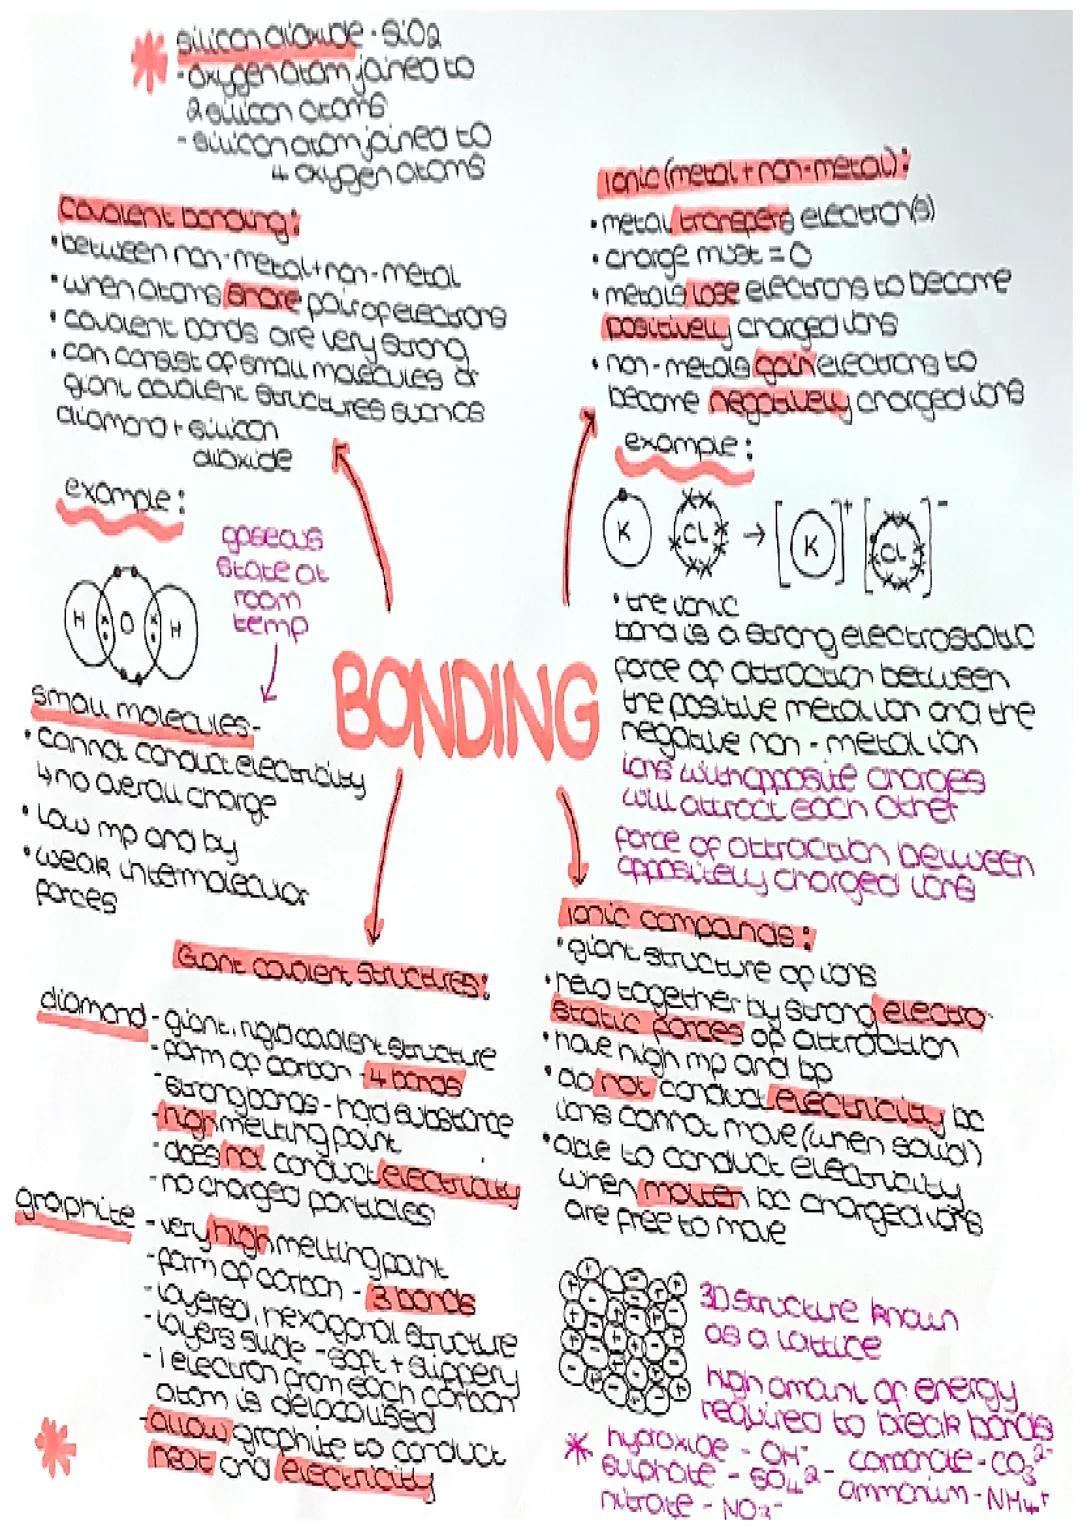 silicon dioxide - SiO2
- oxygen atom joined to
2 silicon atoms
- silicon atom joined to
4 oxygen atoms
covalent bonding:
• between non-metal + non-metal
• when atoms share pairs of electrons
• covalent bonds are very strong
• can consist of small molecules or
giant covalent structures such as
diamond + silicon
dioxide
example:
gaseous
state at
room
temp
H O H
small molecules -
• cannot conduct electricity
↳ no overall charge
• low mp and bp
• weak intermolecular
forces
BONDING
Ionic (metal + non-metal):
• metal transfers electron(s)
• charge must = 0
• metals lose electrons to become
positively charged ions
• non-metals gain electrons to
become negatively charged ions
example:
K Cl → [K]+ [Cl]-
• the ionic
bond is a strong electrostatic
force of attraction between
the positive metal ion and the
negative non-metal ion
ions with opposite charges
will attract each other
force of attraction between
oppositely charged ions
Giant covalent structures:
diamond - giant, rigid covalent structure
- form of carbon - 4 bonds
- strong bonds - hard substance
- high melting point
- does not conduct electricity
- no charged particles
graphite - very high melting point
- form of carbon - 3 bonds
- layered, hexagonal structure
- layers slide - soft + slippery
- 1 electron from each carbon
atom is delocalised
- allow graphite to conduct
heat and electricity
ionic compounds:
• giant structure of ions
• held together by strong electro-
static forces of attraction
• have high mp and bp
• do not conduct electricity bc
ions cannot move (when solid)
• able to conduct electricity
when molten bc charged ions
are free to move
3D structure known
as a lattice
high amount of energy
required to break bonds
* hydroxide - OH-
sulphate - SO4 2- carbonate - CO3 2-
nitrate - NO3- ammonium - NH4+